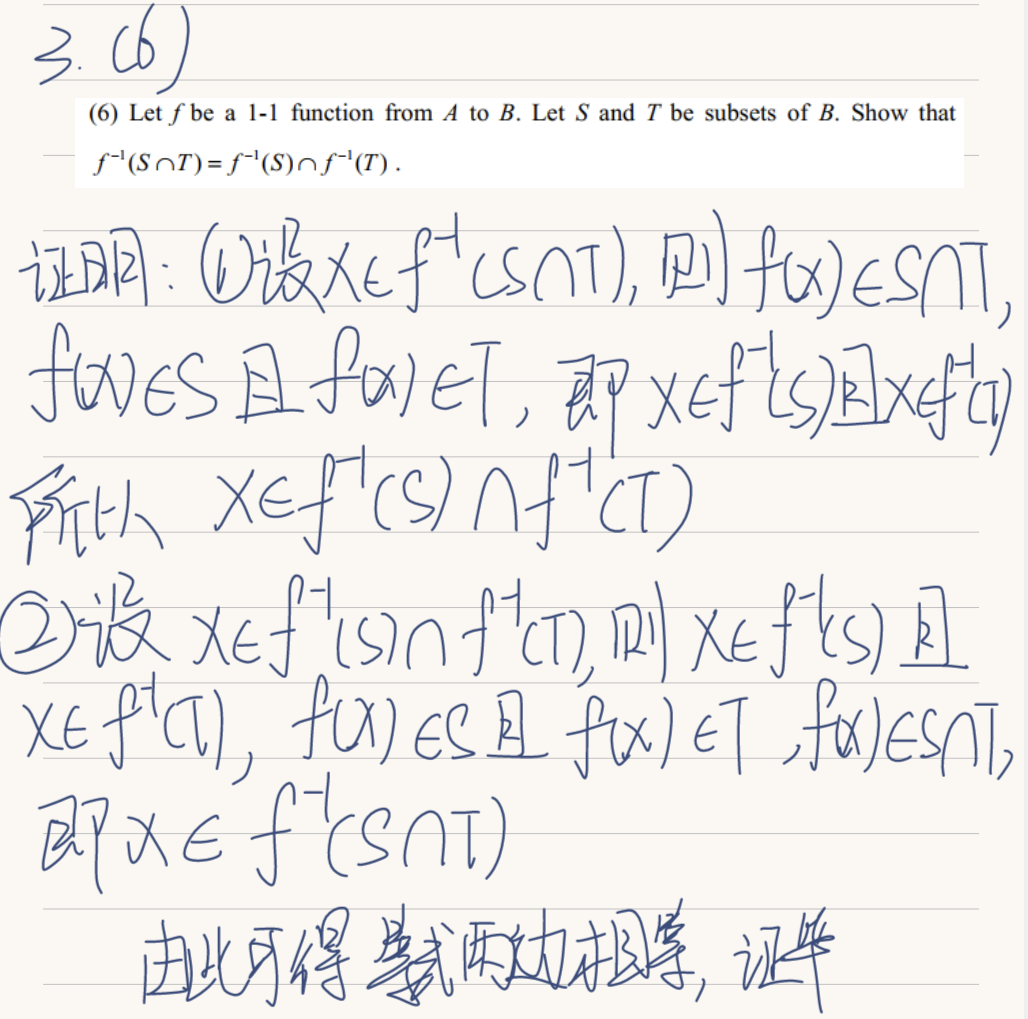 3. (6)
(6) Let f be a 1-1 function from A to B. Let S and T be subsets of B. Show that
f⁻¹(S∩T) = f⁻¹(S)∩f⁻¹(T).
证明: (1)设x∈f⁻¹(S∩T), 则f(x)∈S∩T,
f(x)∈S且f(x)∈T, 即x∈f⁻¹(S)且x∈f⁻¹(T)
所以 x∈f⁻¹(S)∩f⁻¹(T)
②设 x∈f⁻¹(S)∩f⁻¹(T), 则x∈f⁻¹(S)且
x∈f⁻¹(T), f(x)∈S且f(x)∈T, f(x)∈S∩T,
即x∈f⁻¹(S∩T)
由此可得 等式两边相等, 证毕